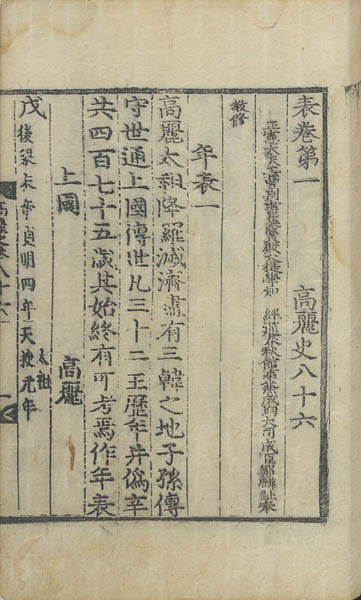 表卷第一 高麗史八十六
正憲大夫工曹判書集賢殿大提學知 經筵春秋館事兼成均大司成臣鄭麟趾奉
教修
年表一
高麗太祖降羅滅濟盡有三韓之地子孫傳
守世通上國傳世凡三十二王歷年并僞辛
共四百七十五歲其始終有可考焉作年表
上國 高麗
戊 後梁末帝貞明四年 太祖 天授元年
高麗史卷八十六
一